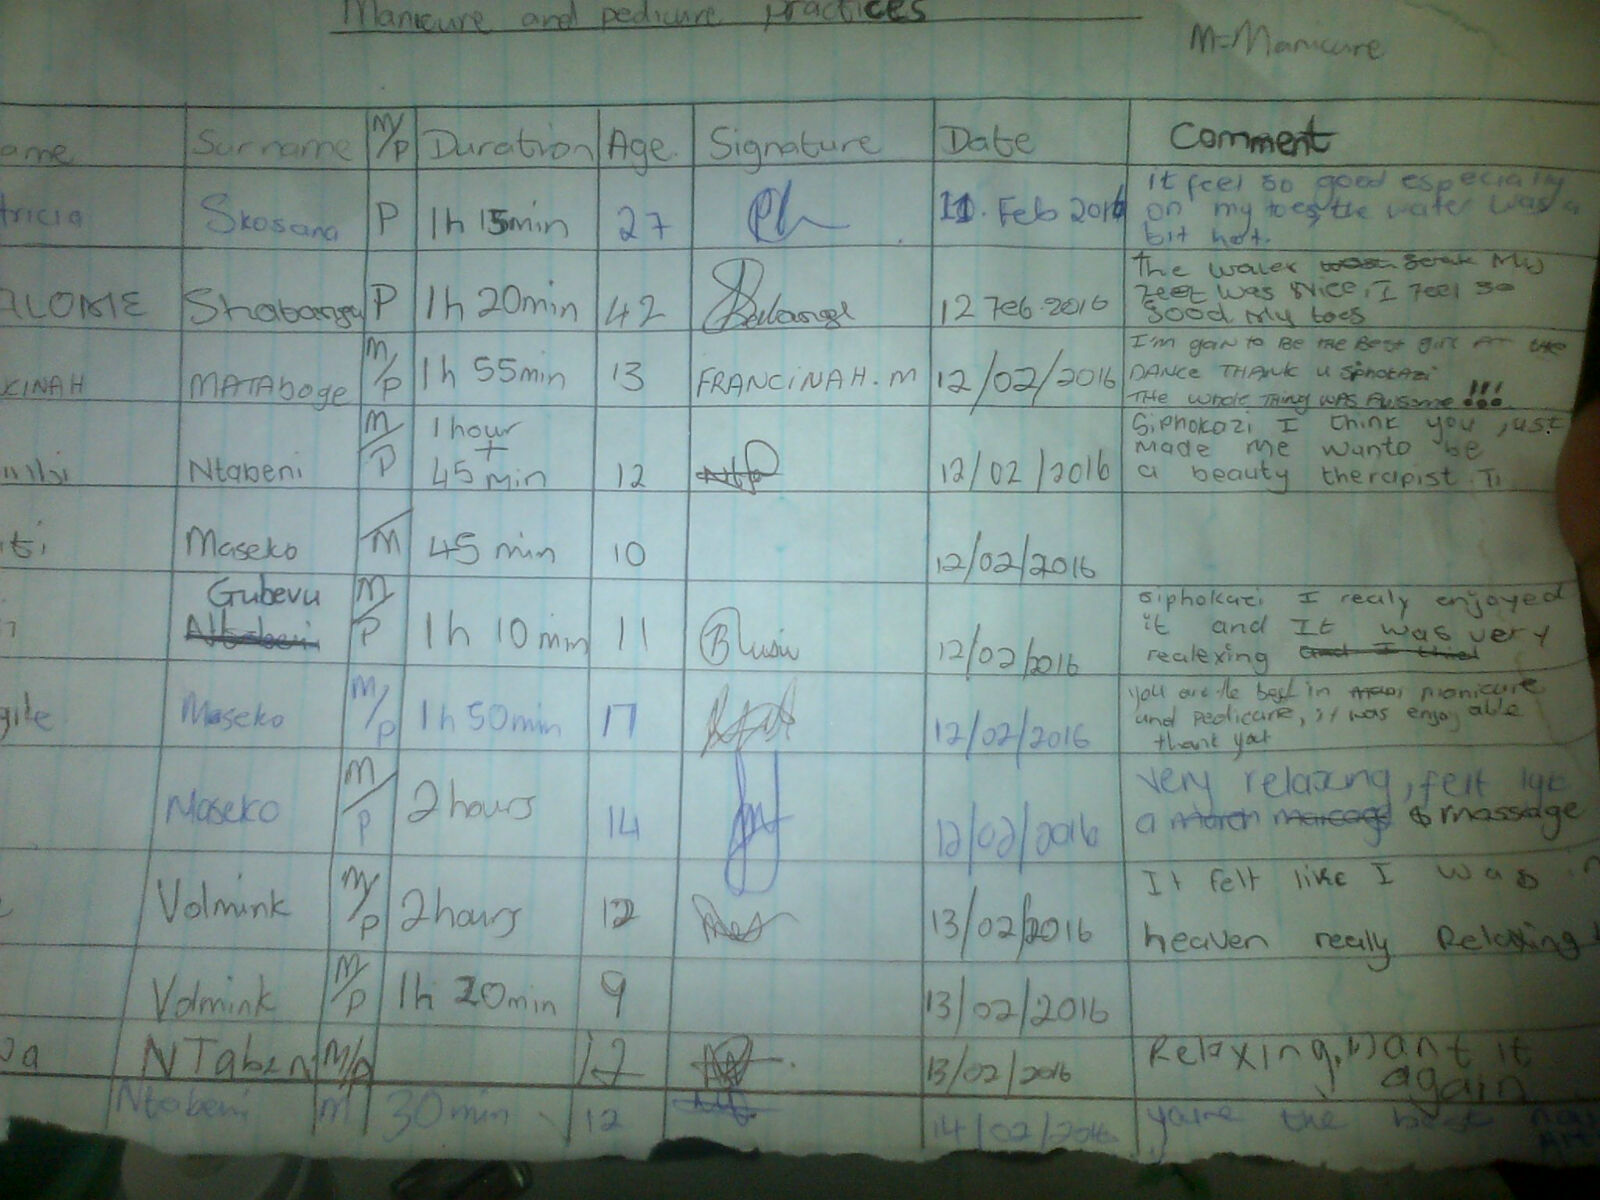 Manicure and pedicure practices
M=Manicure
ame Surname M/P Duration Age Signature Date Comment
tricia Skosana P 1h 15min 27 11. Feb 2016 It feel so good especially
on my toes the water was a
bit hot.
ALOME Shabangu P 1h 20min 42 12 Feb 2016 The water my
feet was nice, I feel so
good my toes
CINAH MATABOGE M/P 1h 55min 13 FRANCINAH.M 12/02/2016 I'm gain to Be the Best girl At the
DANCE THANK u Siphokazi
THE whole THING WAS Awsome !!!
Ntabeni M/P 1hour + 45 min 12 12/02/2016 Siphokazi I think you just
made me wanto be
a beauty therapist.
Maseko M 45 min 10 12/02/2016
Gubevu M/P 1h 10 min 11 12/02/2016 Siphokazi I realy enjoyed
it and It was very
realexing
gile Maseko M/P 1h 50min 17 12/02/2016 You are the best in manicure
and pedicure, it was enjoyable
thank you
Maseko M/P 2hours 14 12/02/2016 Very relaxing, felt lyk
a massage
Volmink M/P 2hours 12 13/02/2016 It felt like I was
heaven really Relaxing
Volmink M/P 1h 20min 9 13/02/2016
NTaben M/P 12 13/02/2016 Relaxing, want it
again
Ntabeni M 30min 12 14/02/2016 youre the best